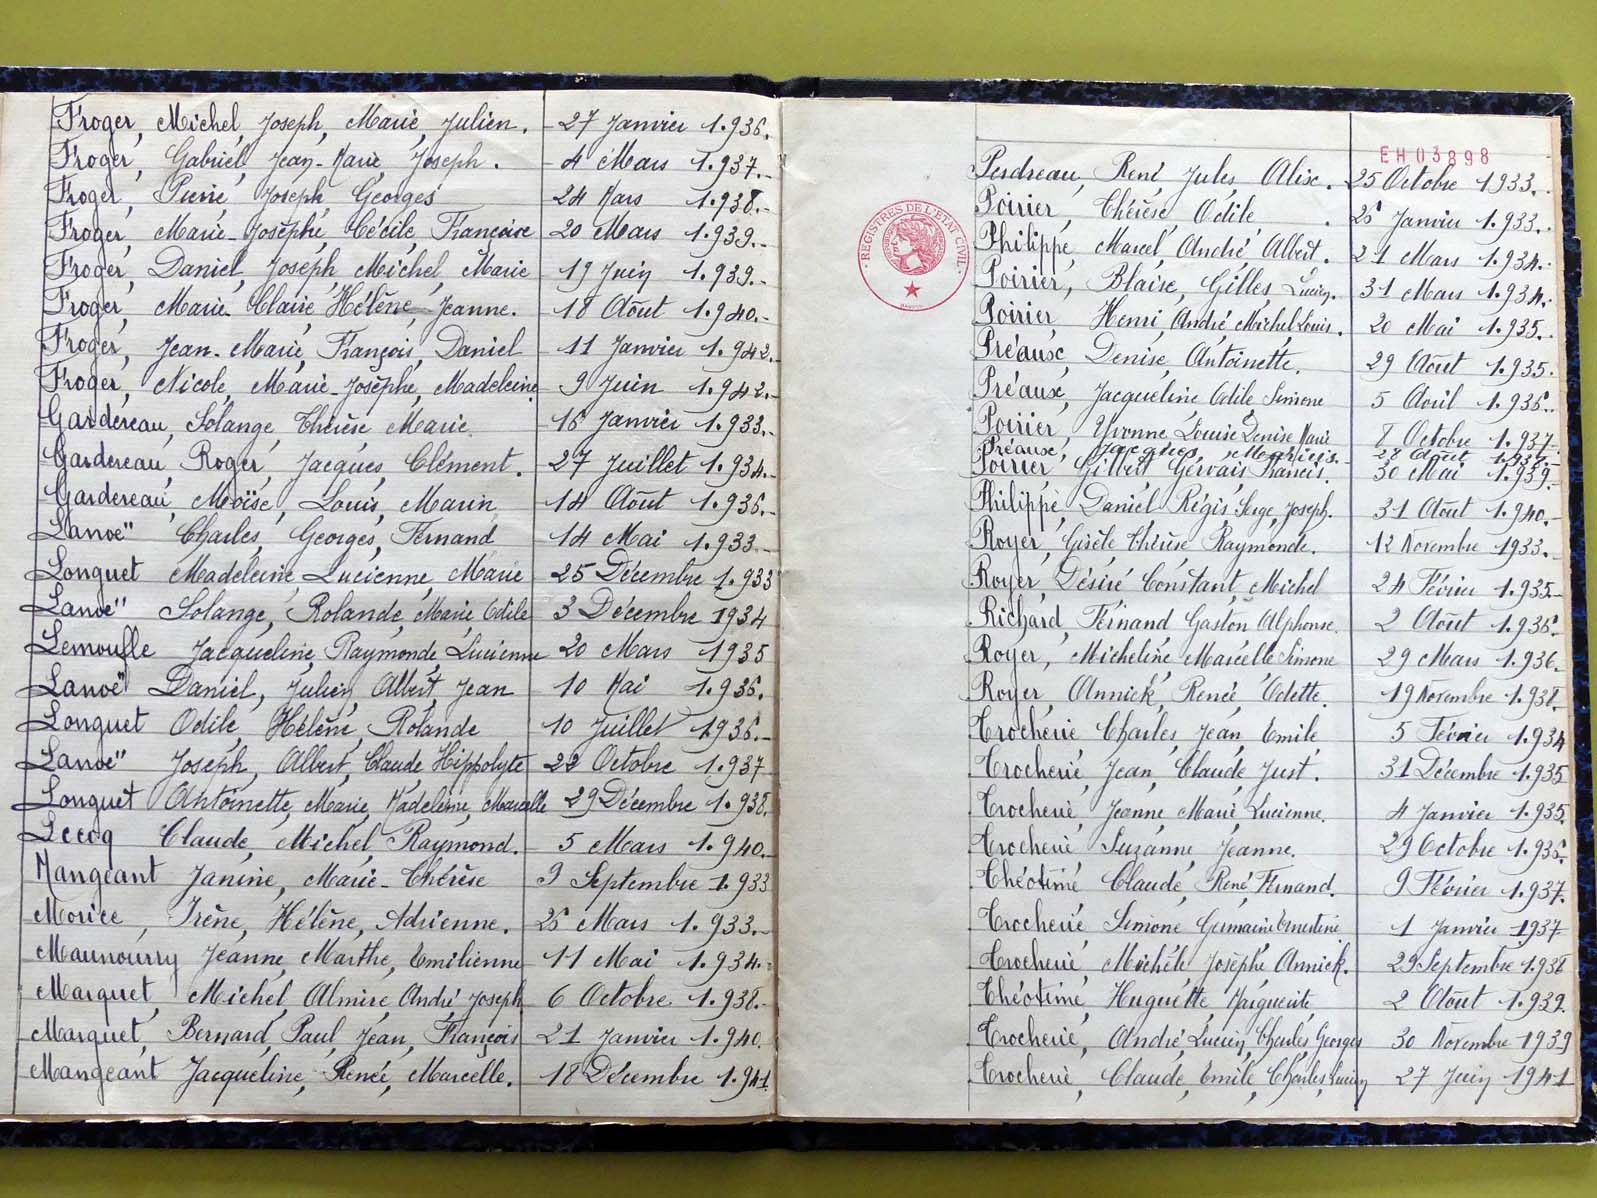 Froger, Michel, Joseph, Marie, Julien. 27 Janvier 1.936.
Froger, Gabriel, Jean-Marie, Joseph. 4 Mars 1.937.
Froger, Pierre, Joseph, Georges 24 Mars 1.938.
Froger, Marie-Josèphe, Cécile, Françoise 20 Mars 1.939.
Froger, Daniel, Joseph, Michel, Marie 19 Juin 1.939.
Froger, Marie-Claire, Hélène, Jeanne. 18 Août 1.940.
Froger, Jean-Marie, François, Daniel 11 Janvier 1.942.
Froger, Nicole, Marie-Josèphe, Madeleine 9 Juin 1.942.
Gardereau, Solange, Thérèse Marie. 16 Janvier 1.933.
Gardereau, Roger, Jacques, Clément. 27 Juillet 1.934.
Gardereau, Moïse, Louis, Marin 14 Août 1.936.
Lanoë Charles, Georges, Fernand 14 Mai 1.933
Longuet Madeleine, Lucienne, Marie 25 Décembre 1.933
Lanoë Solange, Rolande, Marie, Odile 3 Décembre 1934
Lemoufle Jacqueline, Raymonde, Lucienne 20 Mars 1935
Lanoë Daniel, Julien, Albert, Jean 10 Mai 1.936.
Longuet Odile, Hélène, Rolande 10 Juillet 1.936.
Lanoë Joseph, Albert, Claude, Hippolyte 22 Octobre 1.937
Longuet Antoinette, Marie, Madeleine, Marcelle 29 Décembre 1.938.
Lecoq Claude, Michel, Raymond. 5 Mars 1.940.
Mangeant Janine, Marie-Thérèse 9 Septembre 1.933
Morice, Irène, Hélène, Adrienne. 26 Mars 1.933.
Maunourry Jeanne, Marthe, Emilienne 11 Mai 1.934.
Marquet, Michel, Almire, André, Joseph 6 Octobre 1.938.
Marquet, Bernard, Paul, Jean, François 21 Janvier 1.940.
Mangeant Jacqueline, Renée, Marcelle. 18 Décembre 1.941.
REGISTRES DE L'ETAT CIVIL
EH03898
Perdreau, René, Jules, Alix. 25 Octobre 1933.
Poirier, Thérèse, Odile. 26 Janvier 1.933.
Philippe, Marcel, André, Albert. 21 Mars 1.934.
Poirier, Blaise, Gilles, Lucien. 31 Mars 1.934.
Poirier Henri, André, Michel, Louis. 20 Mai 1.935.
Préaux, Denise, Antoinette. 29 Août 1.935.
Préaux, Jacqueline Odile Simone 5 Avril 1.936.
Poirier, Yvonne, Louise, Denise, Marie 8 Octobre 1.937.
Préaux, Jacques, 28 Août 1.937.
Poirier Gilbert Gervais Francis. 30 Mai 1.939.
Philippe, Daniel, Régis, Serge, Joseph. 31 Août 1.940.
Royer, Gisèle Thérèse Raymonde. 12 Novembre 1933.
Royer, Désiré Constant, Michel 24 Février 1.935.
Richard, Fernand Gaston Alphonse. 2 Août 1.936.
Royer, Micheline Marcelle Simone 29 Mars 1.936.
Royer, Annick, Renée, Odette. 19 Novembre 1.938.
Trocherie Charles, Jean, Emile, 5 Février 1.934
Trocherie, Jean, Claude, Just. 31 Décembre 1.935
Trocherie, Jeanne, Marie, Lucienne. 4 Janvier 1.935.
Trocherie Suzanne, Jeanne. 29 Octobre 1.936.
Théotime Claude, René, Fernand. 9 Février 1.937.
Trocherie Simone Germaine Ernestine 1 Janvier 1937
Trocherie, Michèle, Josèphe, Annick. 29 Septembre 1.938
Théotime, Huguette, Marguerite, 2 Août 1.939.
Trocherie, André, Lucien, Charles, Georges 30 Novembre 1939
Trocherie, Claude, Emile, Charles, Lucien 27 Juin 1941